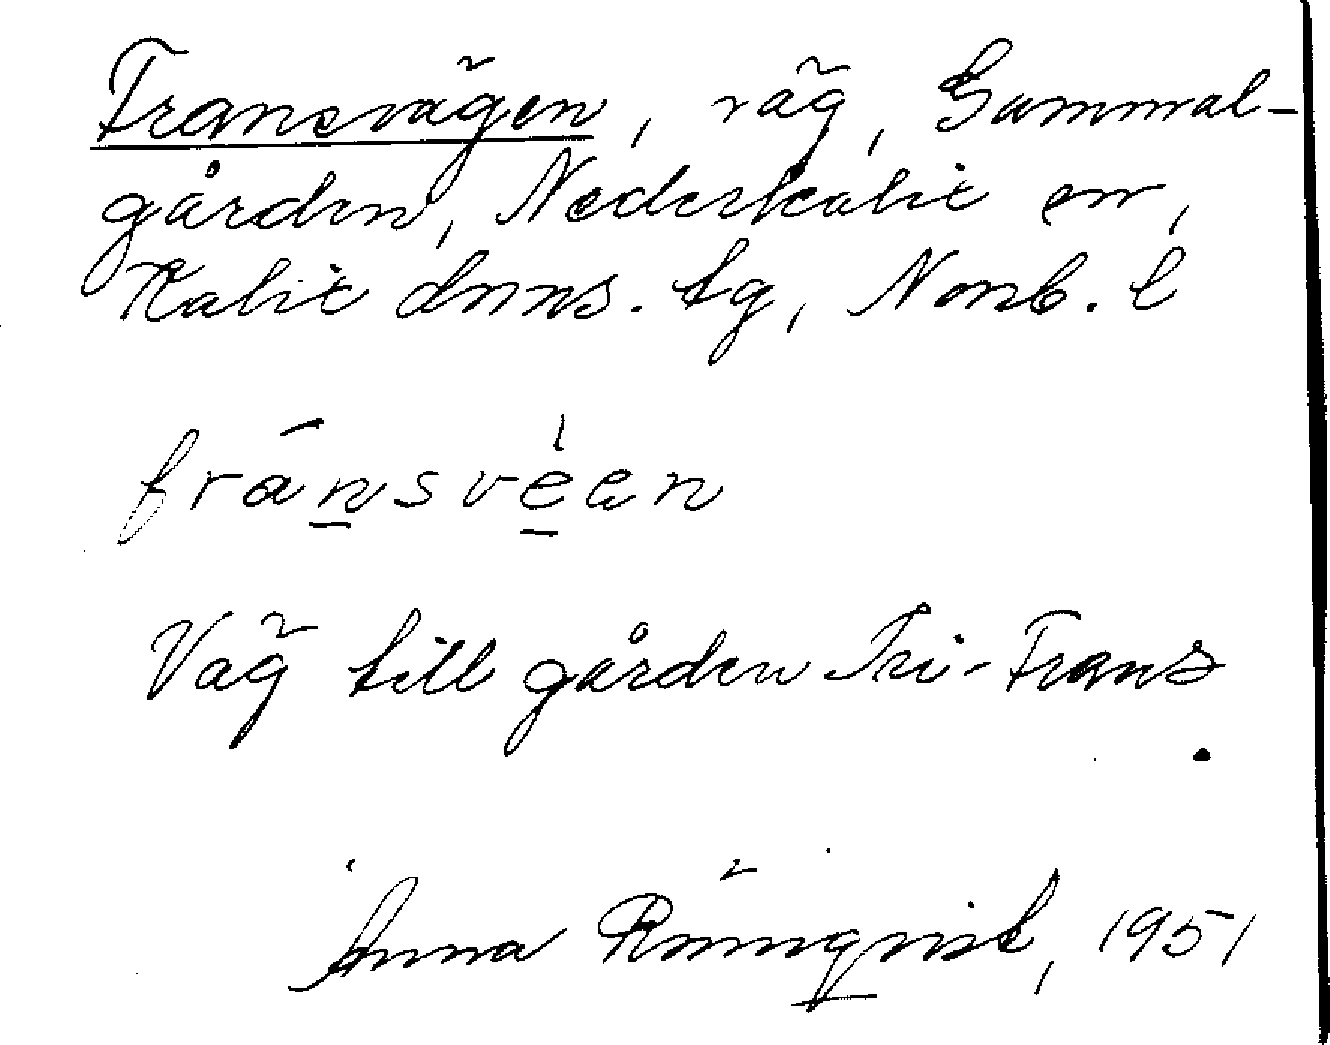 Fransvägen, väg, Gammel-
gården, Nederkalix sn,
Kalix dnns. tg, Norrb. l
fránsvèen
Väg till gården Tri-Frans.
Anna Rönnqvist, 1951